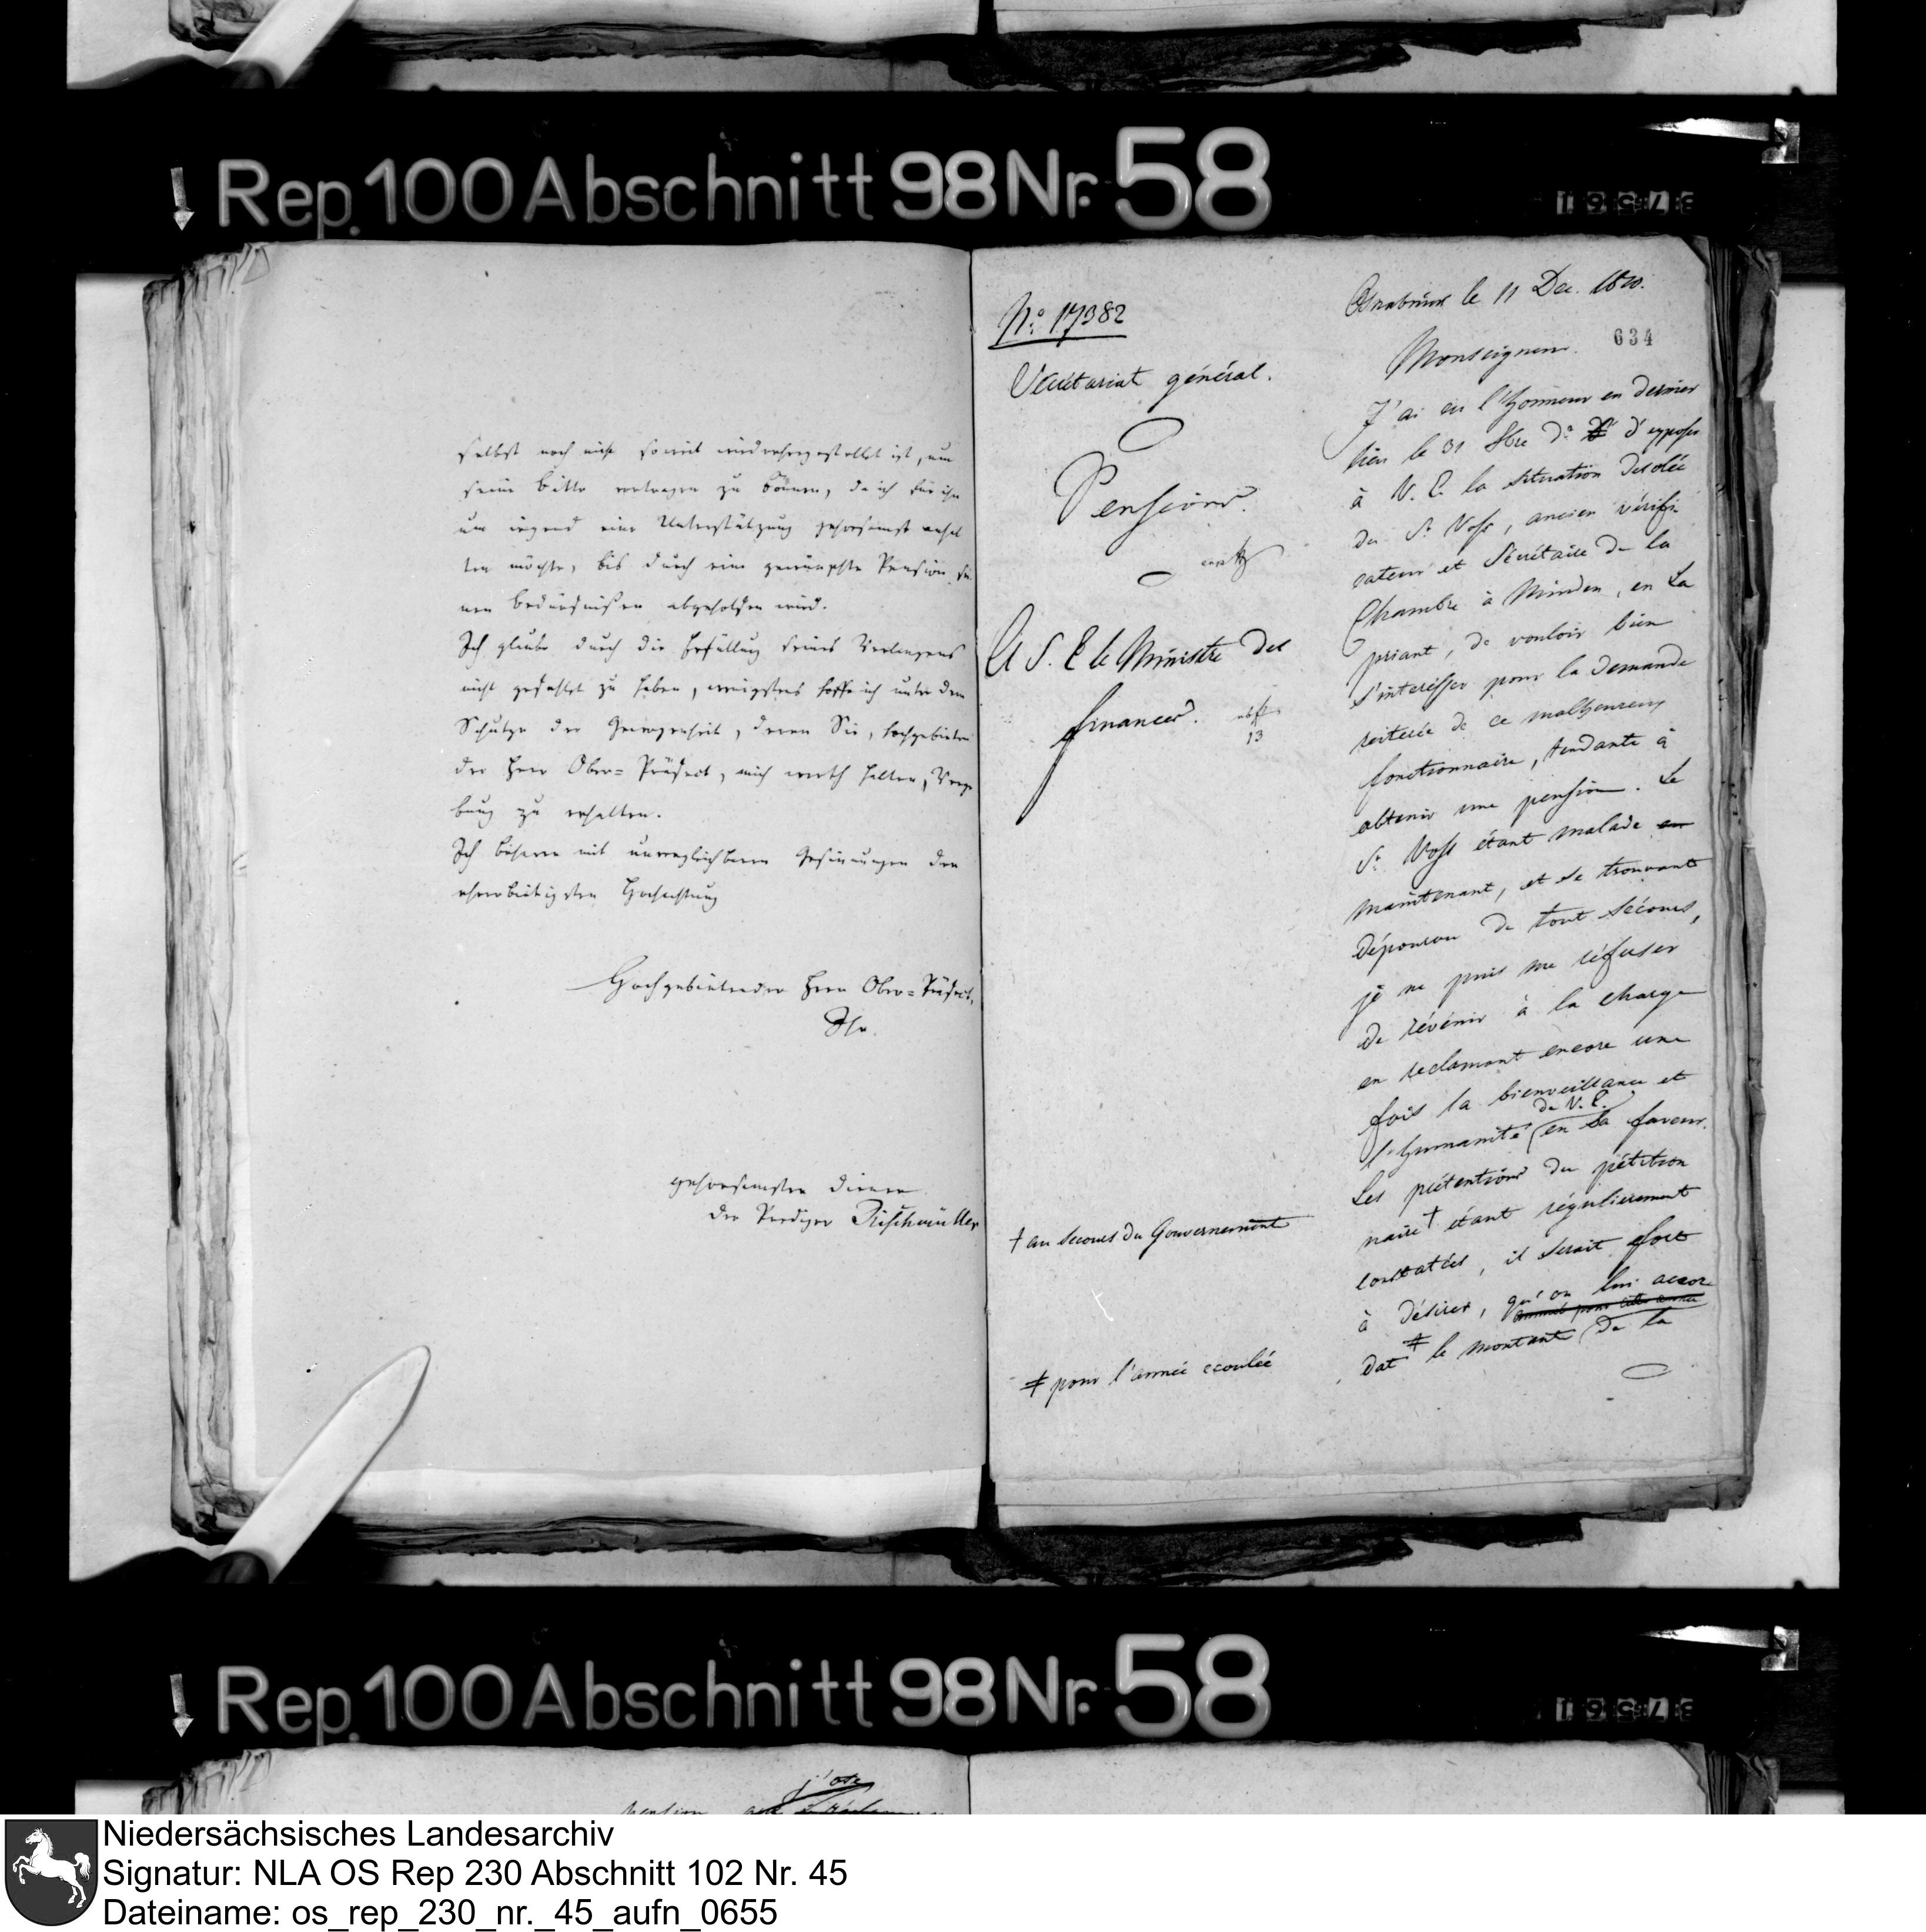 Rep. 100 Abschnitt 98 Nr. 58
selbst noch nicht so weit wiederhergestellet ist, um
seine Bitte vortragen zu können, da ich für ihn
um irgend eine Unterstützung gehorsamst anhal
ten möchte, bis durch eine gewünschte Pension sei
nen Bedürfnißen abgeholfen wird.
Ich glaube durch die Erfüllung seines Verlangens
nicht gefehlet zu haben, wenigstens hoffe ich unter dem
Schutze der Gewogenheit, deren Sie, hochgebieten
der Herr Ober-Präfect, mich werth halten, Verge
bung zu erhalten.
Ich beharre mit unvergleichbaren Gesinnungen der
ehrerbietigsten Hochachtung
Hochgebietender Herr Ober-Präfect,
Ihr
gehorsamster Diener
der Prediger
No. 17382
Secrétariat général.
Pensions.
A S. E. le Ministre des
finances.
13
† au secours du Gouvernement
‡ pour l'année ecoulée
Osnabrück le 11 Dec. 1810.
634
Monseigneur.
J'ai eu l'honneur en dernier
lieu le 31 8bre d'exposer
à V. E. la situation desolée
du Sr. Voss, ancien vérifi
cateur et Sécrétaire de la
Chambre à Minden, en La
priant, de vouloir bien
s'interesser pour la demande
reiterée de ce malheureux
fonctionnaire, tendante à
obtenir une pension. Le
Sr. Voss étant malade en
maintenant, et se trouvant
dépourvu de tout sécours,
je ne puis me réfuser
de révénir à la charge
en reclamant encore une
fois la bienveillance et
de V. E.
l'humanité en sa faveur.
Les prétentions du pétition
naire † étant régulierement
constatées, il serait fort
à désirer, qu'on lui accor
dat ‡ le montant de la
Rep. 100 Abschnitt 98 Nr. 58
j'ose
pension
Niedersächsisches Landesarchiv
Signatur: NLA OS Rep 230 Abschnitt 102 Nr. 45
Dateiname: os_rep_230_nr._45_aufn_0655